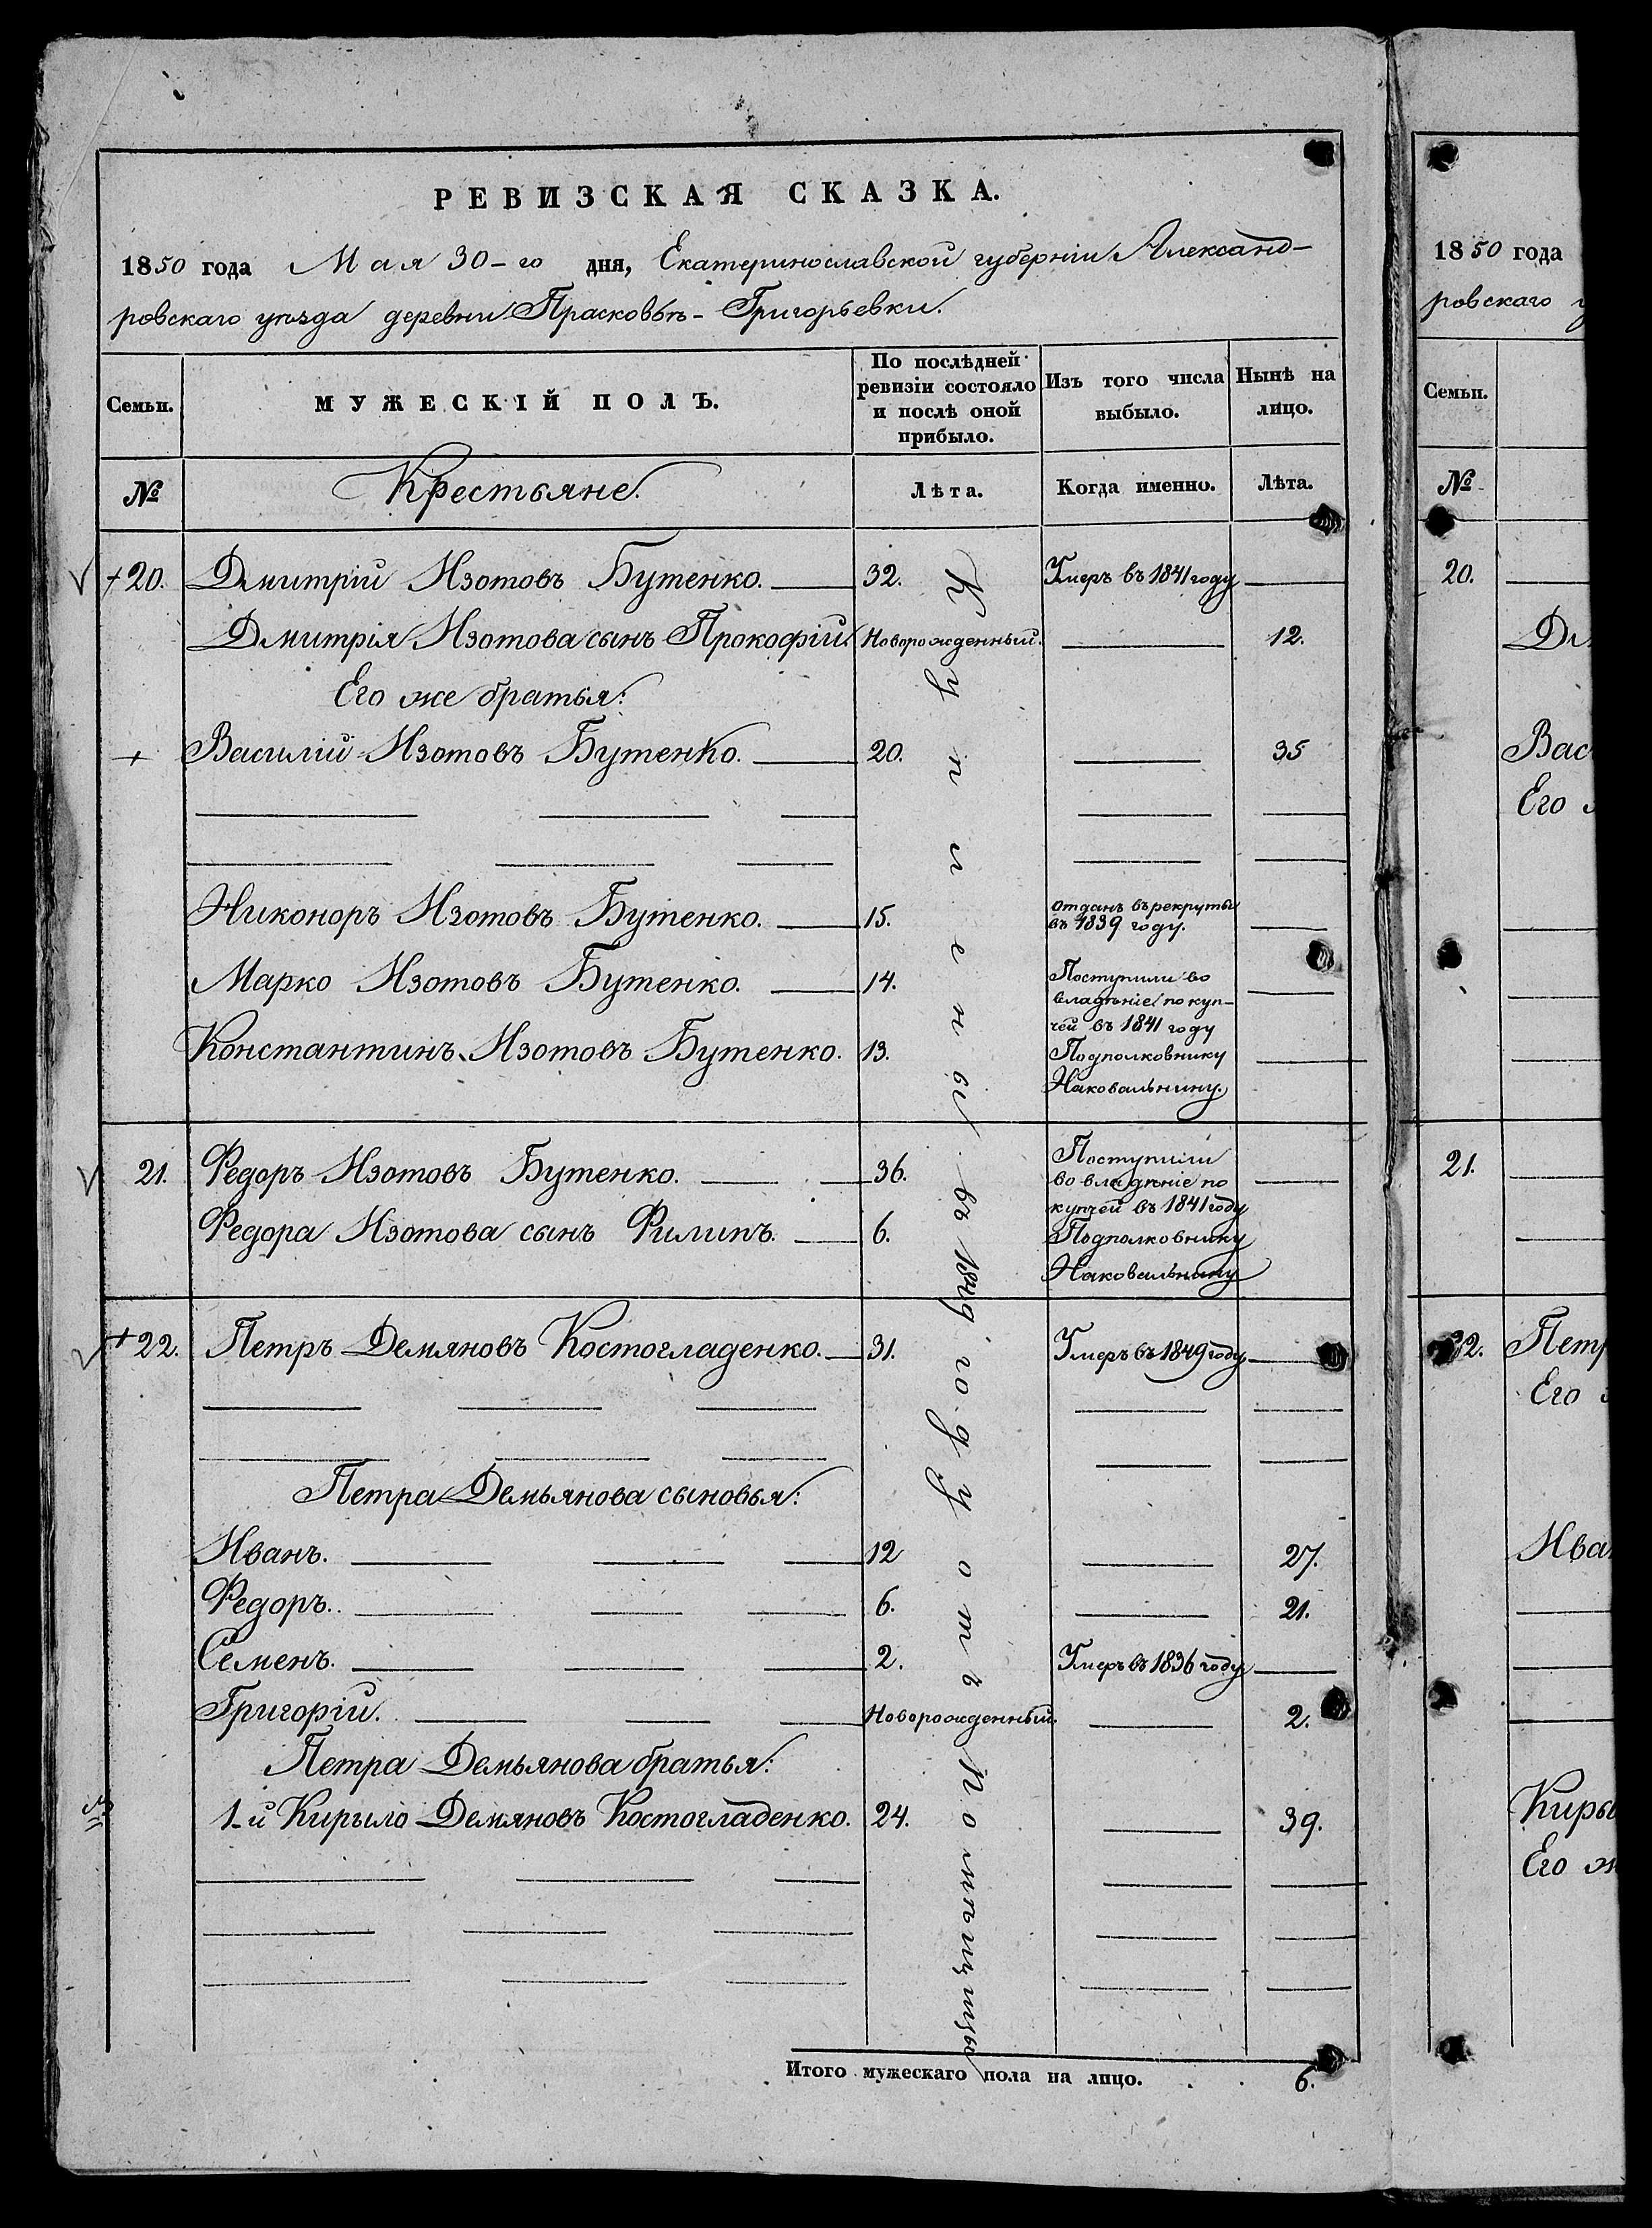 РЕВИЗСКАЯ СКАЗКА.
1850 года Мая 30-го дня, Екатеринославской губерніи Александ-
ровскаго уѣзда деревни Прасковѣ-Григорьевки.
Семьи.
МУЖЕСКІЙ ПОЛЪ.
По послѣдней
ревизіи состояло
и послѣ оной
прибыло.
Изъ того числа
выбыло.
Нынѣ на
лицо.
№
Крестьяне.
Лѣта.
Когда именно.
Лѣта.
+20. Дмитрій Изотовъ Бутенко. 32. Умеръ въ 1841 году
Дмитрія Изотова сынъ Прокофій. Новорожденный. 12.
Его же братья:
+ Василій Изотовъ Бутенко. 20. 35
Никоноръ Изотовъ Бутенко. 15. отданъ въ рекруты
въ 1839 году.
Марко Изотовъ Бутенко. 14. Поступили во
владѣніе по куп-
чей въ 1841 году
Константинъ Изотовъ Бутенко. 13. Подполковнику
Наковальнину.
21. Федоръ Изотовъ Бутенко. 36. Поступили
во владѣніе по
купчей въ 1841 году
Федора Изотова сынъ Филипъ. 6. Подполковнику
Наковальнину
+22. Петръ Демяновъ Костогладенко. 31. Умеръ въ 1849 году
Петра Демьянова сыновья:
Иванъ. 12 27.
Федоръ. 6. 21.
Семенъ. 2. Умеръ въ 1836 году
Григорій. Новорожденный. 2.
Петра Демьянова братья:
1-й Кирыло Демяновъ Костогладенко. 24. 39.
Куплены въ году отъ Помѣщицы
Итого мужескаго пола на лицо. 6.
1850 года
ровскаго у
Семьи.
№
20.
Дм
Вас
Его
21.
22. Петр
Его
Иван
Киры
Его ж